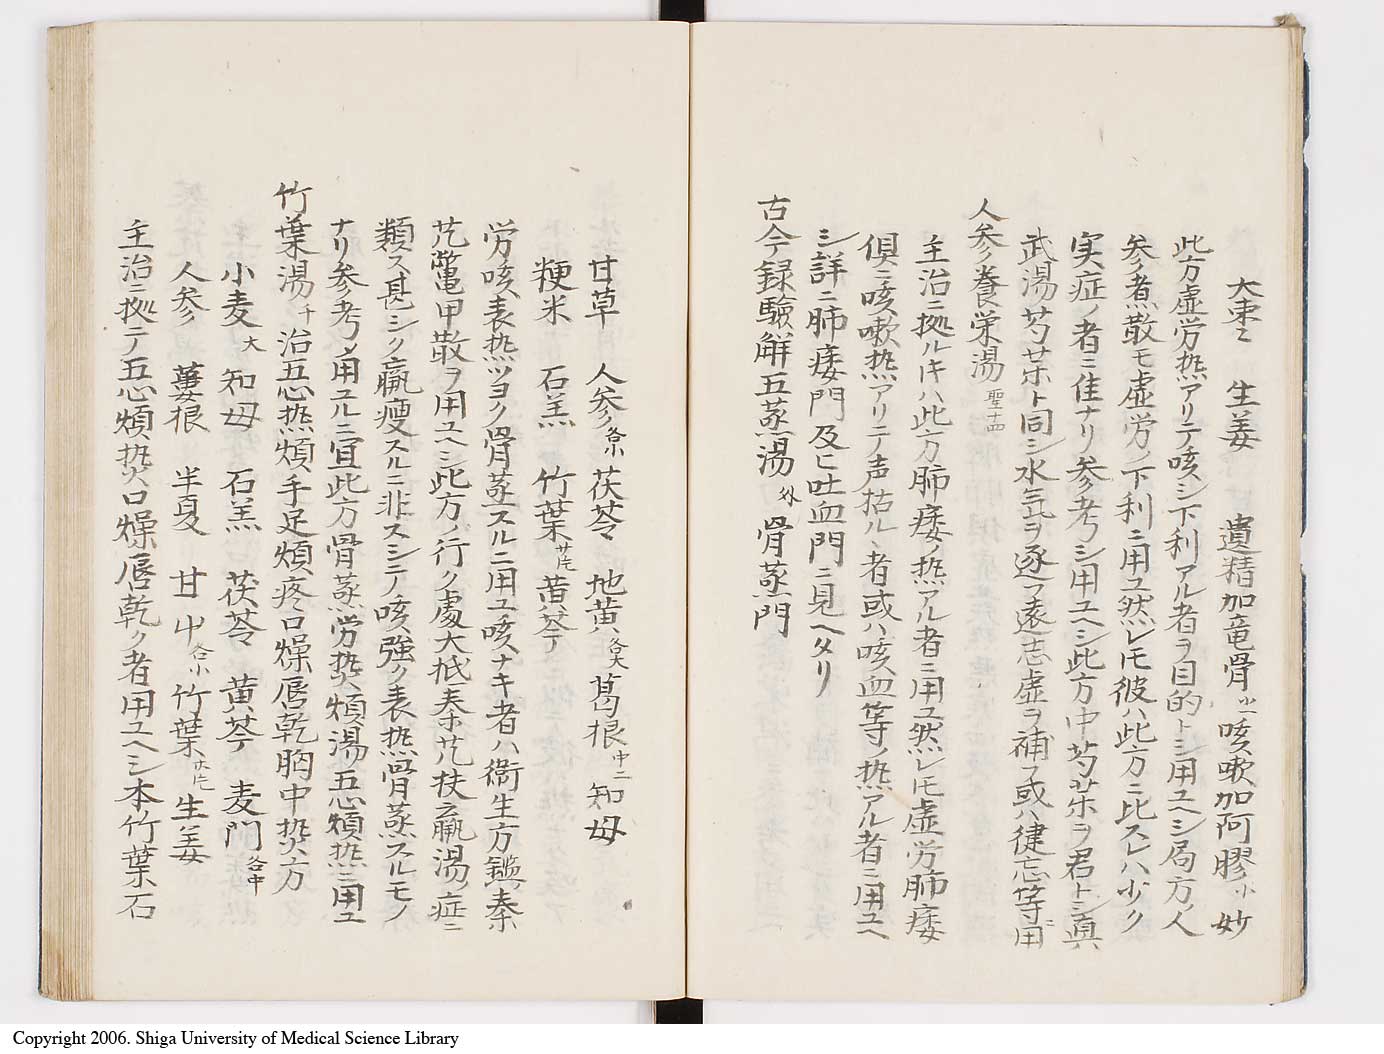 大棗ニ 生姜 遺精加竜骨中一咳嗽加阿膠小妙
此方虚労熱アリテ咳シ下利アル者ヲ目的トシ用ユヘシ局方ノ人
参煮散モ虚労ノ下利ニ用ユ然レモ彼ハ此方ニ比スレハ少ク
実症ノ者ニ佳ナリ参考シ用ユヘシ此方中芍朮ヲ君トシ真
武湯芍朮ト同シ水気ヲ逐フ遠志虚ヲ補フ或ハ健忘等ニ用
人参養栄湯 聖十四
主治ニ拠ルキハ此方肺痿ノ熱アル者ニ用ユ然レモ虚労肺痿
倶ニ咳嗽熱アリテ声枯ルヽ者或ハ咳血等ノ熱アル者ニ用ユヘ
シ詳ニ肺痿門及ヒ吐血門ニ見ヘタリ
古今録驗解五蒸湯 外 骨蒸門
甘草 人参各小茯苓 地黄各大葛根中二知母
粳米 石羔 竹葉廿片黄芩
労咳表熱ツヨク骨蒸スルニ用ユ咳ナキ者ハ衛生方鑑ノ秦
艽鼈甲散ヲ用ユヘシ此方ノ行ク處大抵秦艽扶羸湯ノ症ニ
類ス甚シク羸痩スルニ非スシテ咳強ク表熱骨蒸スルモノ
ナリ参考ノ用ユルニ宜此方骨蒸労熱煩湯ノ五心煩熱ニ用ユ
竹葉湯 千 治五心熱煩手足煩疼口燥唇乾胸中熱方
小麦大 知母 石羔 茯苓 黄芩 麦門各中
人参 蔞根 半夏 甘艸各小 竹葉廿片生姜
主治ニ拠テ五心煩熱口燥唇乾ク者用ユヘシ本竹葉石
Copyright 2006. Shiga University of Medical Science Library